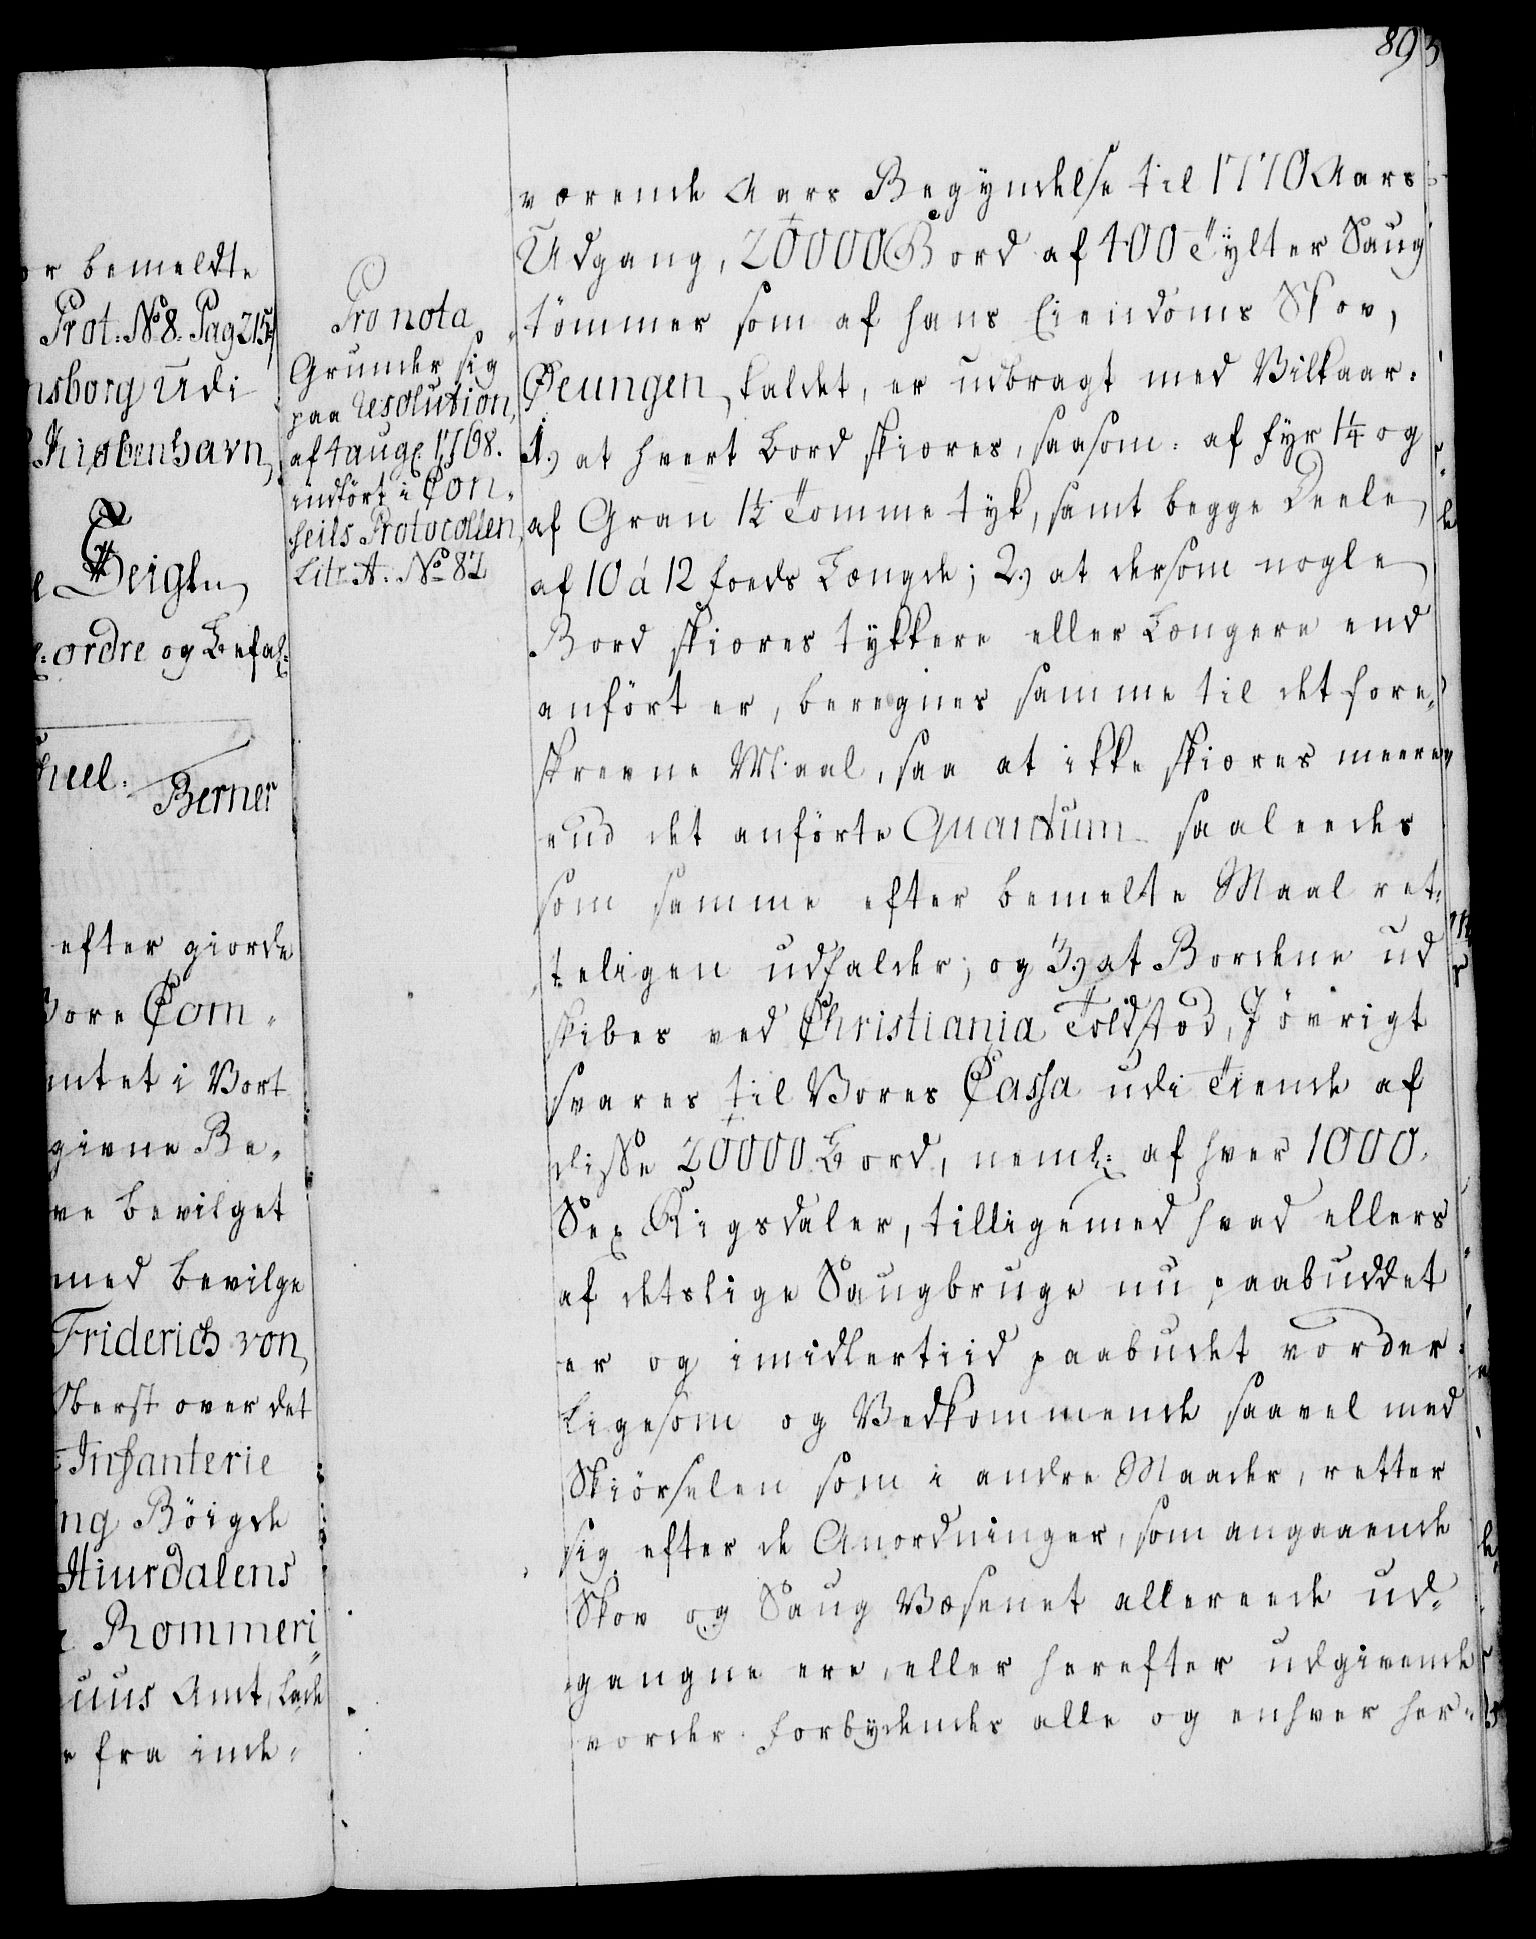 893
or bemeldte
Prot: No 8. Pag 215,
nsborg udi
Kiøbenhavn
Seigln
ordre og befal:
heel.
Berner
efter giorde
Vore Com-
mtet i Vort
givne Be-
ve bevilget
med bevilge
Friderich von
Oberst over det
Infanterie
ng Böigde
Hiurdalens
Rommeri-
uus Amt, lade
fra inde-
Pro nota
Grunder sig
paa Resolution,
af 4 aug: 1768.
indført i Con-
seils Protocollen
Litr: A. No 82
værende Aars Begyndelse til 1770 Aars
Udgang, 20000 Bord af 400 Tylter Saug
tömmer som af hans Eiendoms Skov,
Deungen kaldet, er udbragt med Vilkaar:
1.) at hvert Bord skiøres, saasom: af fyr 1¼ og
af Gran 1½ Tomme tyk, samt begge Deele
af 10 á 12 foeds Længde; 2.) at dersom nogle
Bord skiøres tykkere eller Længere end
anfört er, beregnes samme til det fore-
skrevne Maal, saa at ikke skiøres meere
end det anførte Quantum saaleedes
som samme efter bemelte Maal ret-
teligen udfalder; og 3.) at Bordene ud
skibes ved Christiania Toldstod, I övrigt
svares til Vores Cassa udi Tiende af
disse 20000 Bord, neml: af hver 1000.
Sex Rigsdaler, tilligemed hvad ellers
af detslige Saugbruge nu paabuddet
er og imidlertiid paabudet vorder:
Ligesom og Vedkommende saavel med
Skiörselen som i andre Maader, retter
sig efter de Anordninger, som angaaende
Skov og Saug Væsenet allereede ud-
gangne ere, eller herefter udgivende
vorder. Forbydendes alle og enhver her-